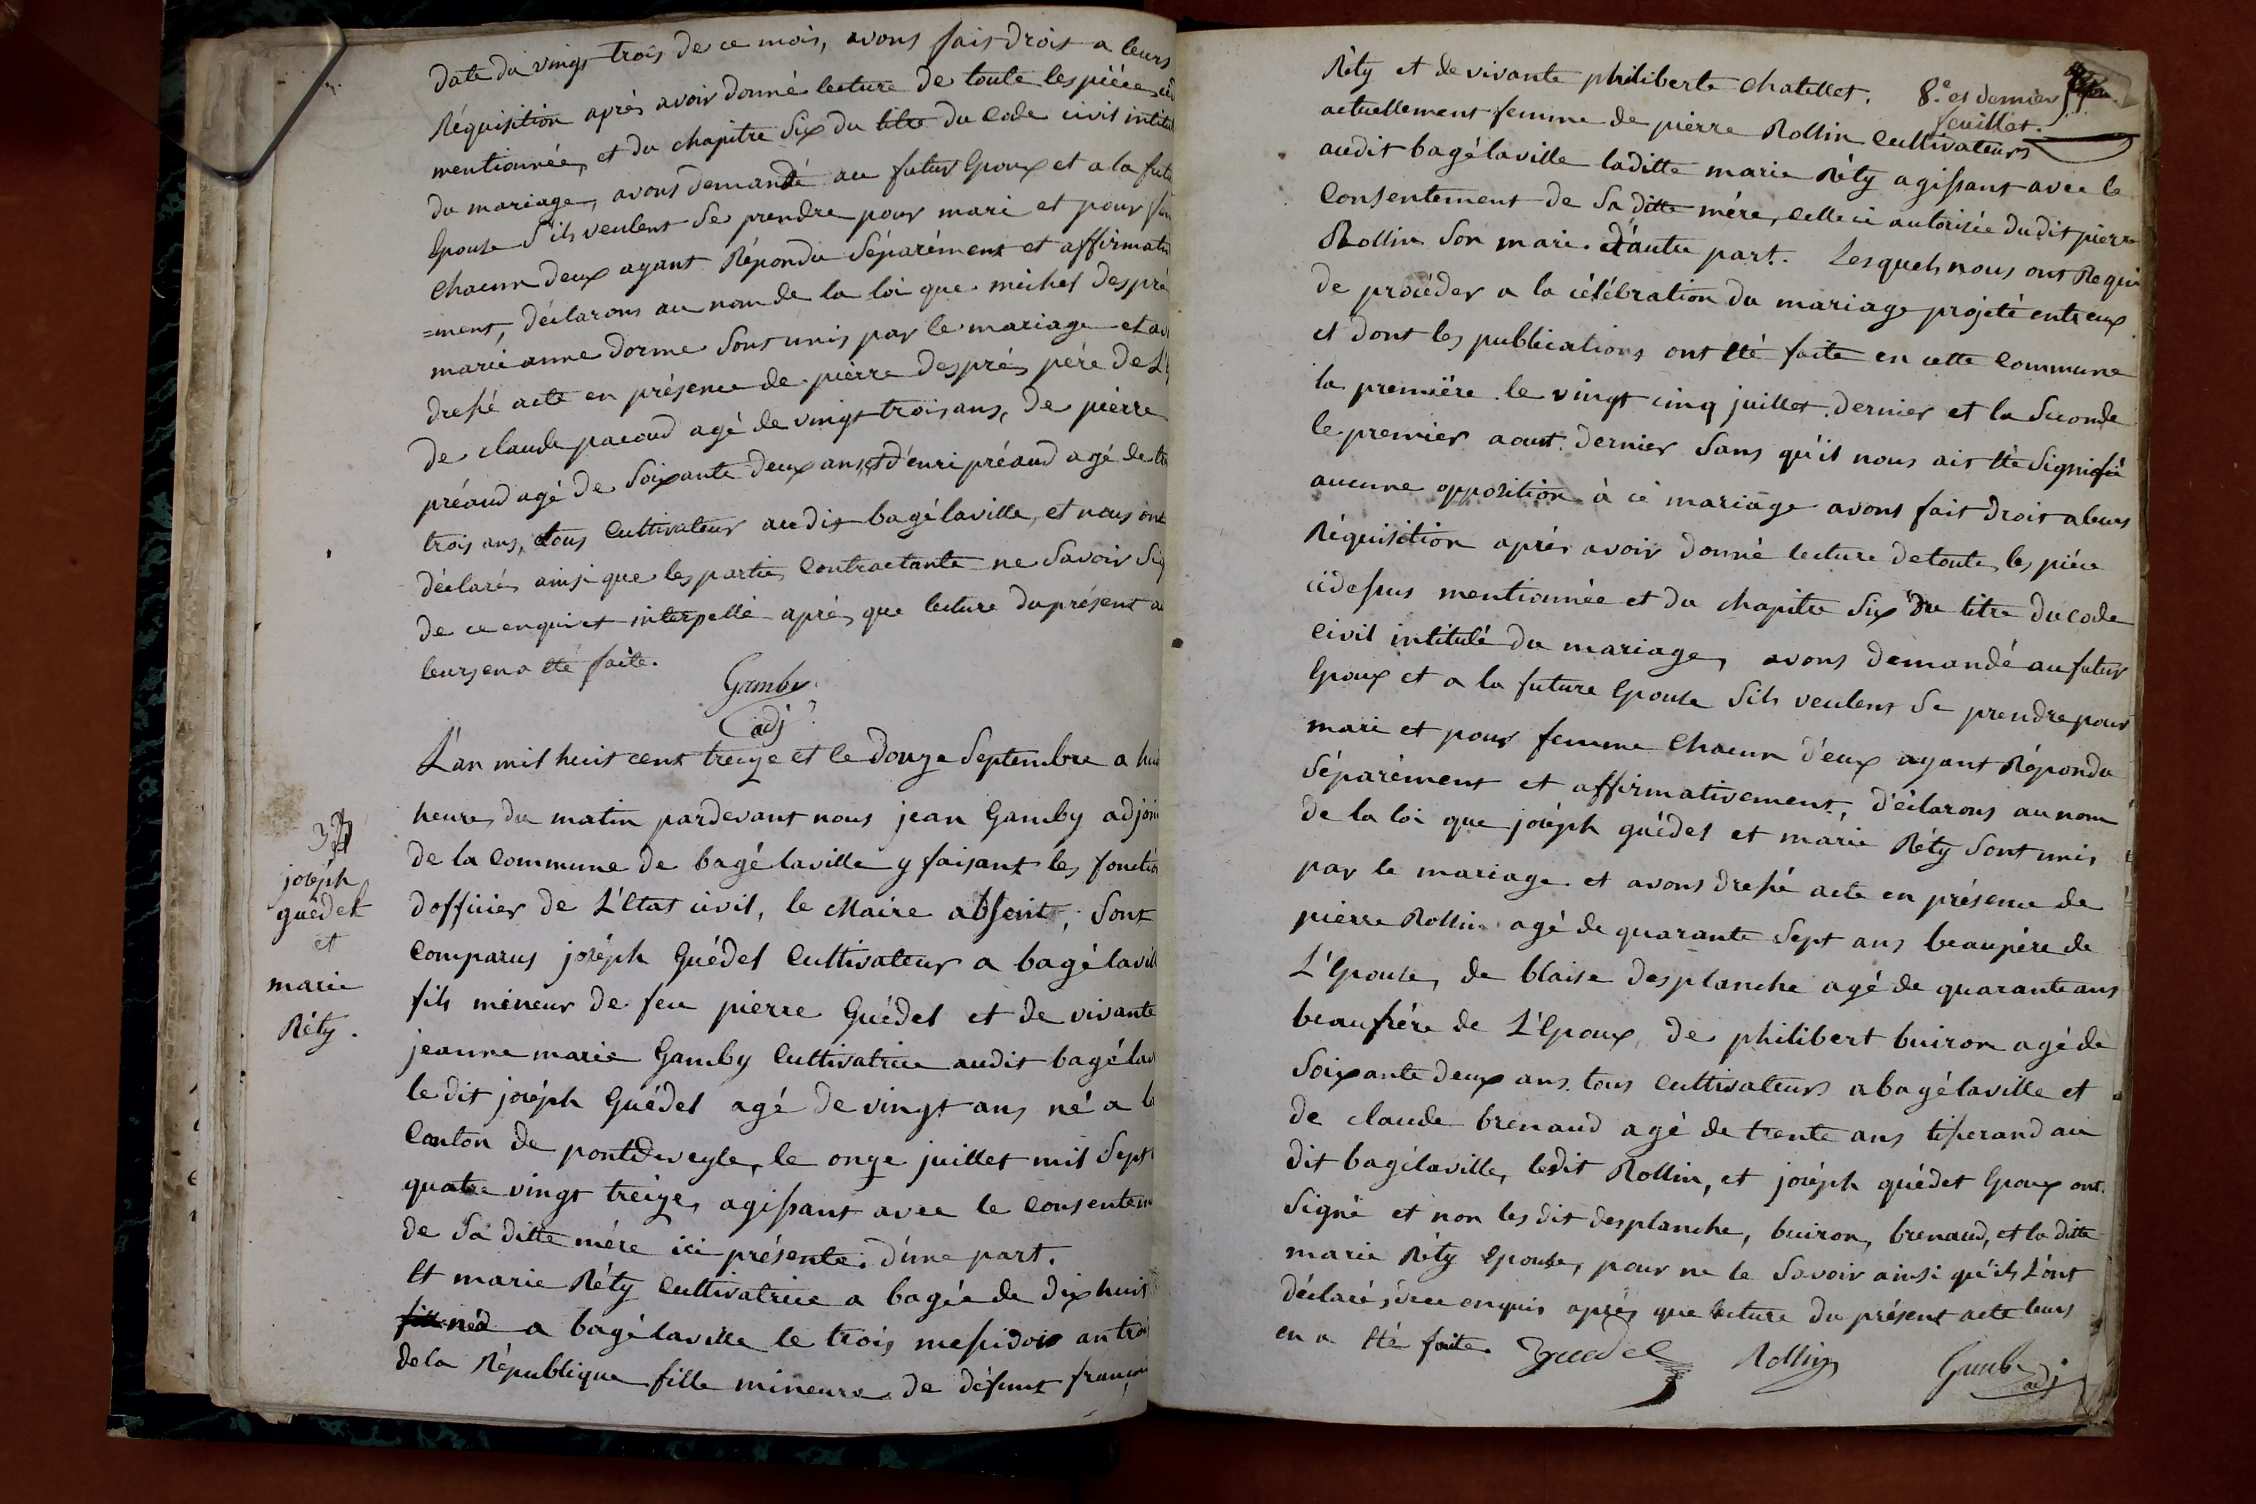 date du vingt trois de ce mois, avons fait droit a leurs
Réquisition après avoir donné lecture de toute les pièce
mentionnée, et du chapitre Six du titre du Code civil intitul
du mariage, avons demandé au futur Epoux et a la futu
Epouse S'ils veulent Se prendre pour mari et pour
chacun deux ayant Répondu Séparément et affirmativ
=ment, déclarons au nom de la loi que michel despré
marie anne dorme Sont unis par le mariage et av
dressé acte en présence de pierre després père de L'
de claude pacoud agé de vingt trois ans, de pierre
préaud agé de Soixante deux ans, et d'enri préaud agé de
trois ans, tous Cultivateur audit bagélaville, et nous ont
déclarés ainsi que les partie Contractante ne Savoir Sig
de ce enquis et interpellé après que lecture du présent a
leurs en a été faite.
Gamby
adj
L'an mil huit cent treize et le douze Septembre a hui
heure du matin pardevant nous jean Gamby adjoi
de la Commune de bagé laville y faisant les fonctio
dofficier de L'Etat civil, le Maire absent, Sont
Comparus joséph Guédel Cultivateur a bagé lavill
fils mineur de feu pierre Guédel et de vivante
jeanne marie Gamby Cultivatrice audit bagé lav
le dit joséph Guédel agé de vingt ans né a
Canton de pontdeveyle, le onze juillet mil Sept
quatre vingt treize, agissant avec le Consentem
de Sa ditte mére ici présente. d'une part.
Et marie Réty Cultivatrice a bagée de dix huit
née a bagé laville le trois messidor an troi
de la République fille mineure de défunt françoi
joséph
guédel
et
marie
Réty.
Réty et de vivante philiberte Chatillet.
8.e et dernier
feuillet.
actuellement femme de pierre Rollin Cultivateurs
audit bagé laville laditte marie Réty agissant avec le
Consentement de Sa ditte mére, celle ci autorisée dudit pierre
Rollin Son mari. d'autre part. Lesquels nous ont Requi
de procéder a la célébration du mariage projeté entr eux
et dont les publications ont été faite en cette Commune
la première le vingt cinq juillet dernier et la Seconde
le premier aout dernier Sans qu'il nous ait été Signifié
aucune opposition à ce mariage avons fait droit a leurs
Réquisition aprés avoir donné lecture de toute les piéce
cidessus mentionnée et du chapitre Six du titre du Code
Civil intitulé du mariage, avons demandé au futur
Epoux et a la future Epouse S'ils veulent Se prendre pour
mari et pour femme Chacun d'eux ayant Répondu
Séparément et affirmativement, déclarons au nom
de la loi que joséph guédel et marie Réty Sont unis
par le mariage et avons dressé acte en présence de
pierre Rollin agé de quarante Sept ans beaupère de
L'Epouse, de blaise desplanche agé de quarante ans
beaufrére de L'Epoux, de philibert buiron agé de
Soixante deux ans. tous Cultivateurs a bagé laville et
de claude brenaud agé de trente ans tisserand au
dit bagélaville, ledit Rollin, et joséph guédel Epoux ont
Signé et non lesdit desplanche, buiron, brenaud, et la ditte
marie Réty Epouse, pour ne le Savoir ainsi qu'ils L'ont
déclaré, dece enquis après que lecture du présent acte leurs
en a été faite.
Guedel
Rollin
Gamby
adj